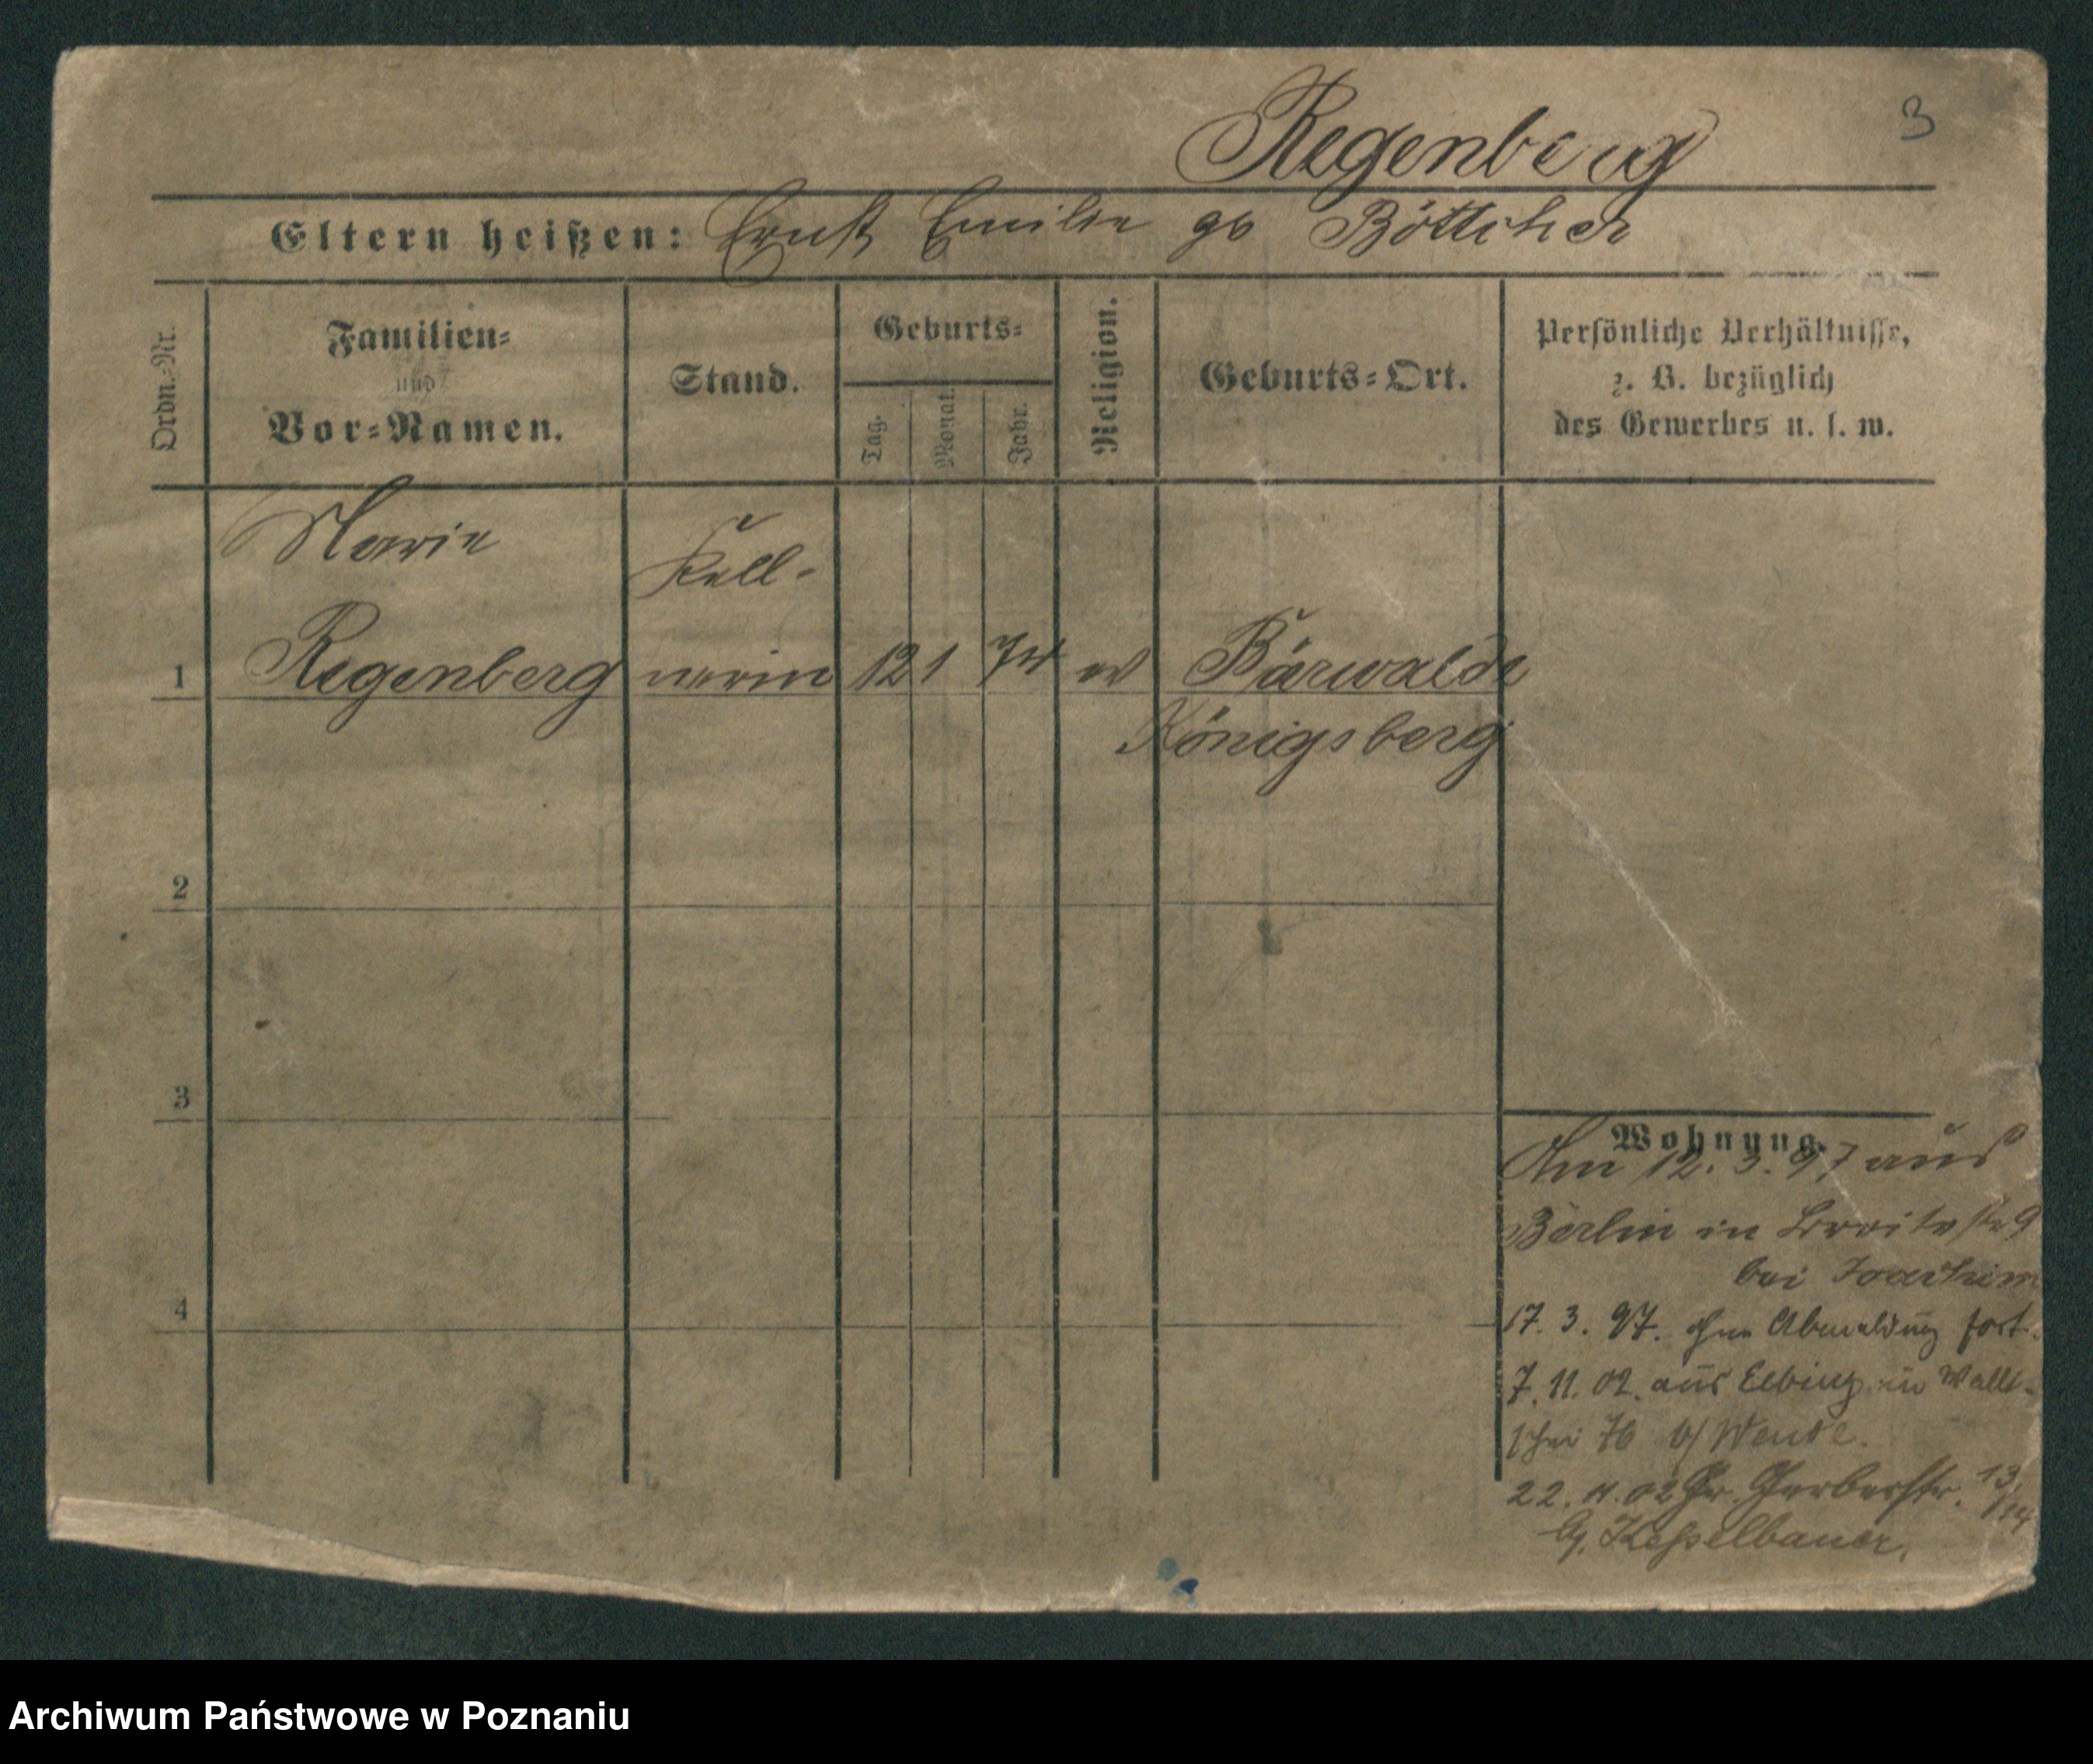 3
Regenberg
Eltern heißen: Ernst Emilie gb Böttcher
Ordn.=Nr.
Familien=
und
Vor=Namen.
Stand.
Geburts=
Tag.
Monat.
Jahr.
Religion.
Geburts=Ort.
Persönliche Verhältnisse,
z. B. bezüglich
des Gewerbes u. s. w.
Marie Kell-
1 Regenberg nerin 12 1 74 ev Bärwalde
Königsberg
2
3
4
Wohnung.
Am 12. 3. 97 aus
Berlin in Breitestr 9
bei Joachim
17. 3. 97. ohne Abmeldung fort.
7. 11. 02. aus Elbing in Walli-
schei 76 b/ Wende.
22. 11. 02 Gr. Gerberstr. 13/14
b. Kesselbauer.
Archiwum Państwowe w Poznaniu